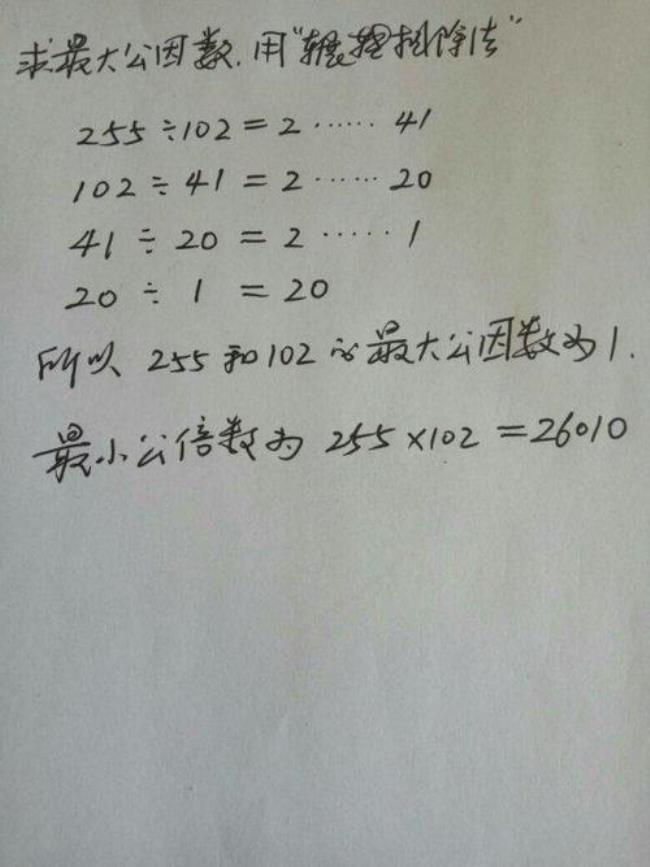 求最大公因数.用"辗转相除法"
255÷102=2······41
102÷41=2······20
41÷20=2·····1
20÷1=20
所以 255和102的最大公因数为1.
最小公倍数为 255×102=26010